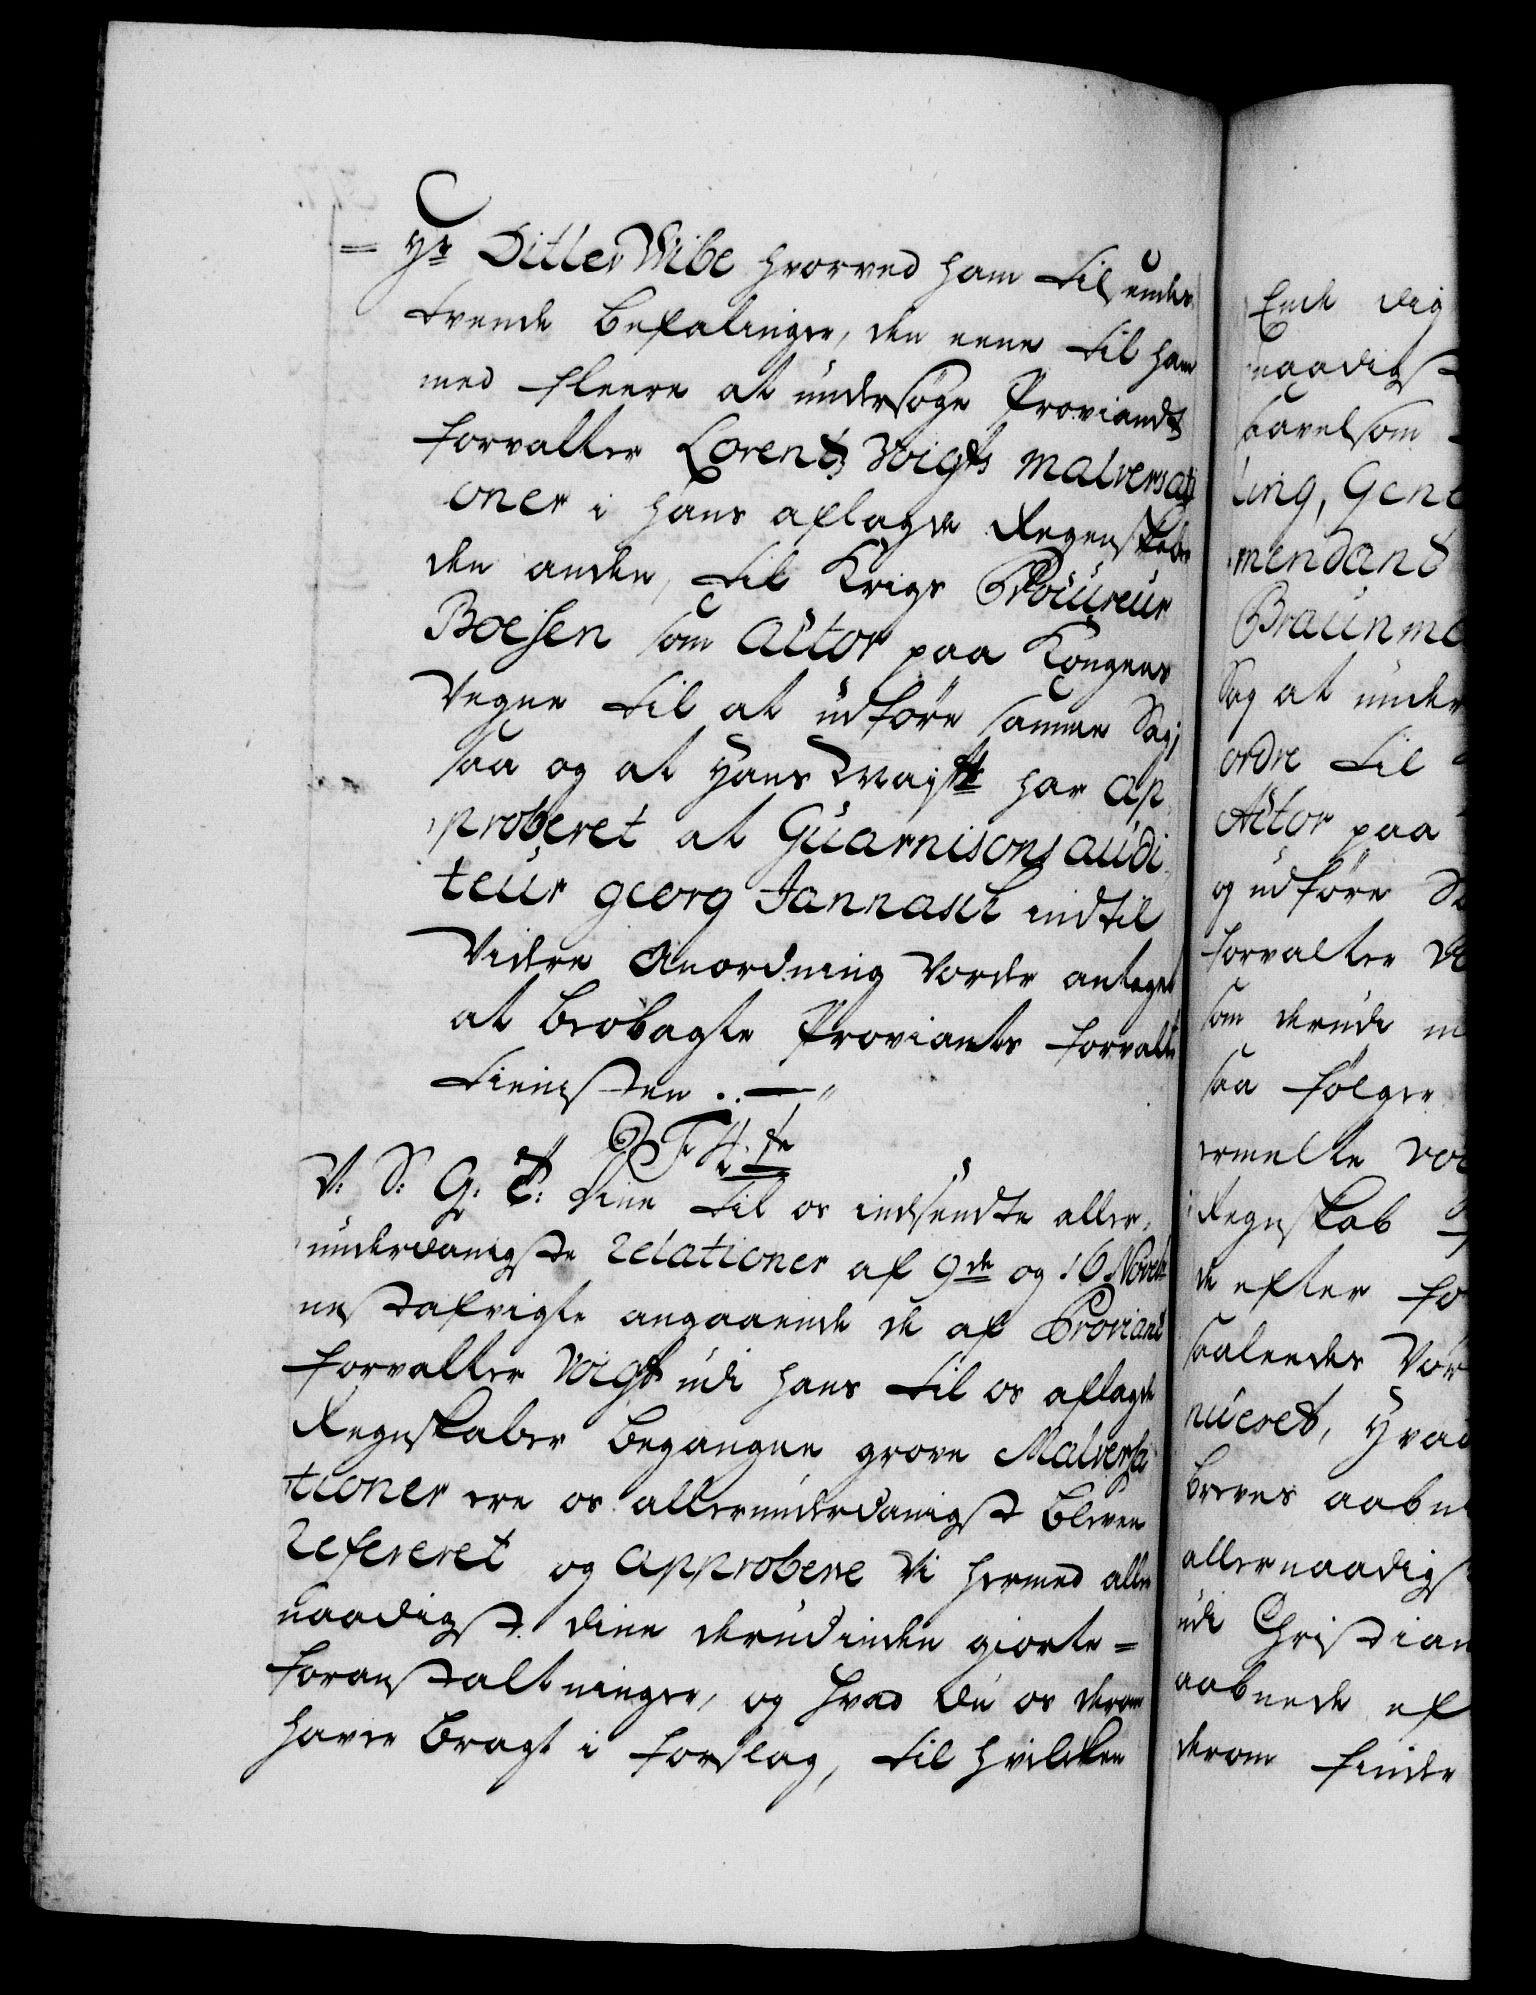 = Hr Ditlev Wibe hvorved ham tilsendes
tvende Befalinger, den eene til ham
med fleere at undersøge Proviandt
forvalter Lorentz Voigts malversati
oner i hans aflagde Regenskaber
den anden, til Krigs Procureur
Boesen som Actor paa Kongens
Vegne til at udføre samme Sag,
saa og at Hans Mayst har ap
proberet at Guarnisons audi
teur georg Jannasch indtil
Videre Anordning vorder antaget
at betragte Proviants forvalter
tienisten ..
F. 4. de
V: S: G: T: Dine til os indsendte aller
underdanigste relationer af 9de og 16 Novembr
nestafvigte angaaende de af Proviant
forvalter Voigt udi hans til os aflagde
Regnskaber begangne grove Malversa
tioner ere os allerunderdanigst bleven
refereret og approbere Vi hermed aller
naadigst dine derudinden giorte =
foranstaltninger, og hvad du os derom
haver bragt i forslag, til hvilcken
Ende dig
naadigst
saavelsom
ling, Gene
mendant
Braunma
Sag at under
ordre til
Actor paa
og udføre Sa
forvalter Vo
som derudi
saa følger
ermelte
Regnskab
de efter fo
saaledes Vor
nueret, hvad
breves aabn
allernaadigst
udi Christian
aabnede
derom finder